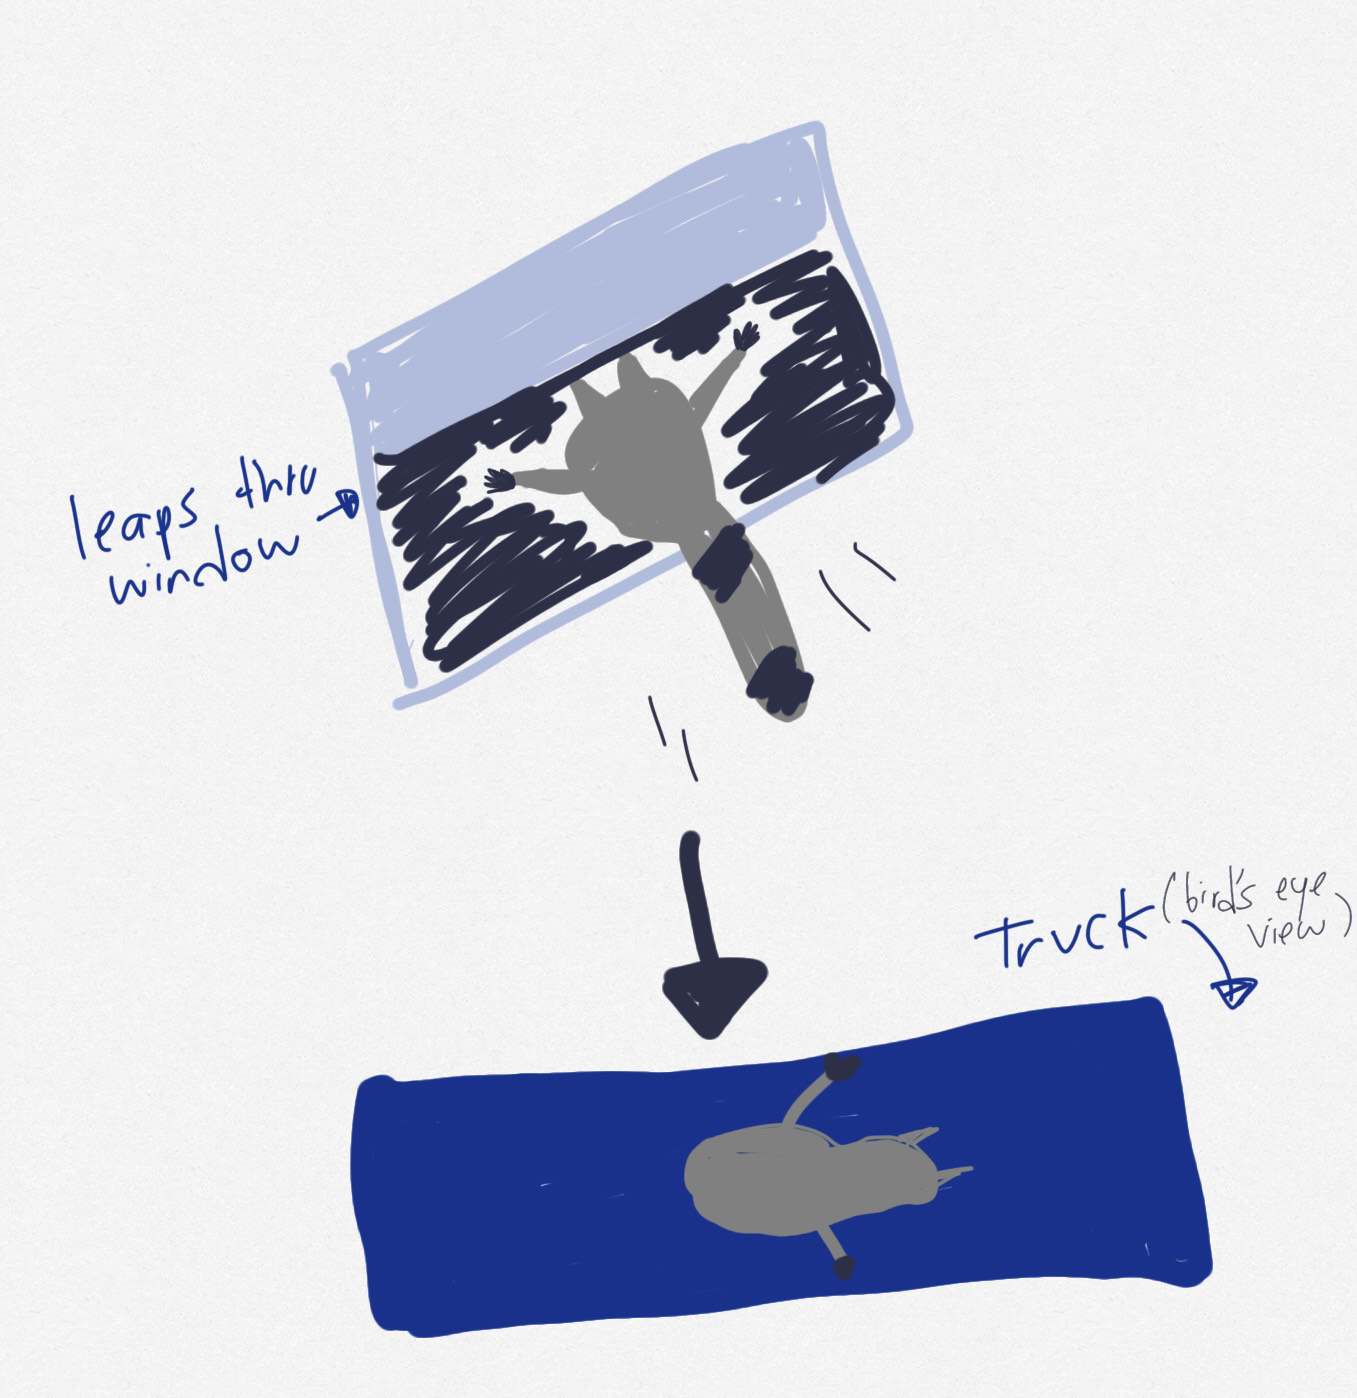 leaps thru
window
Truck (bird's eye
view)